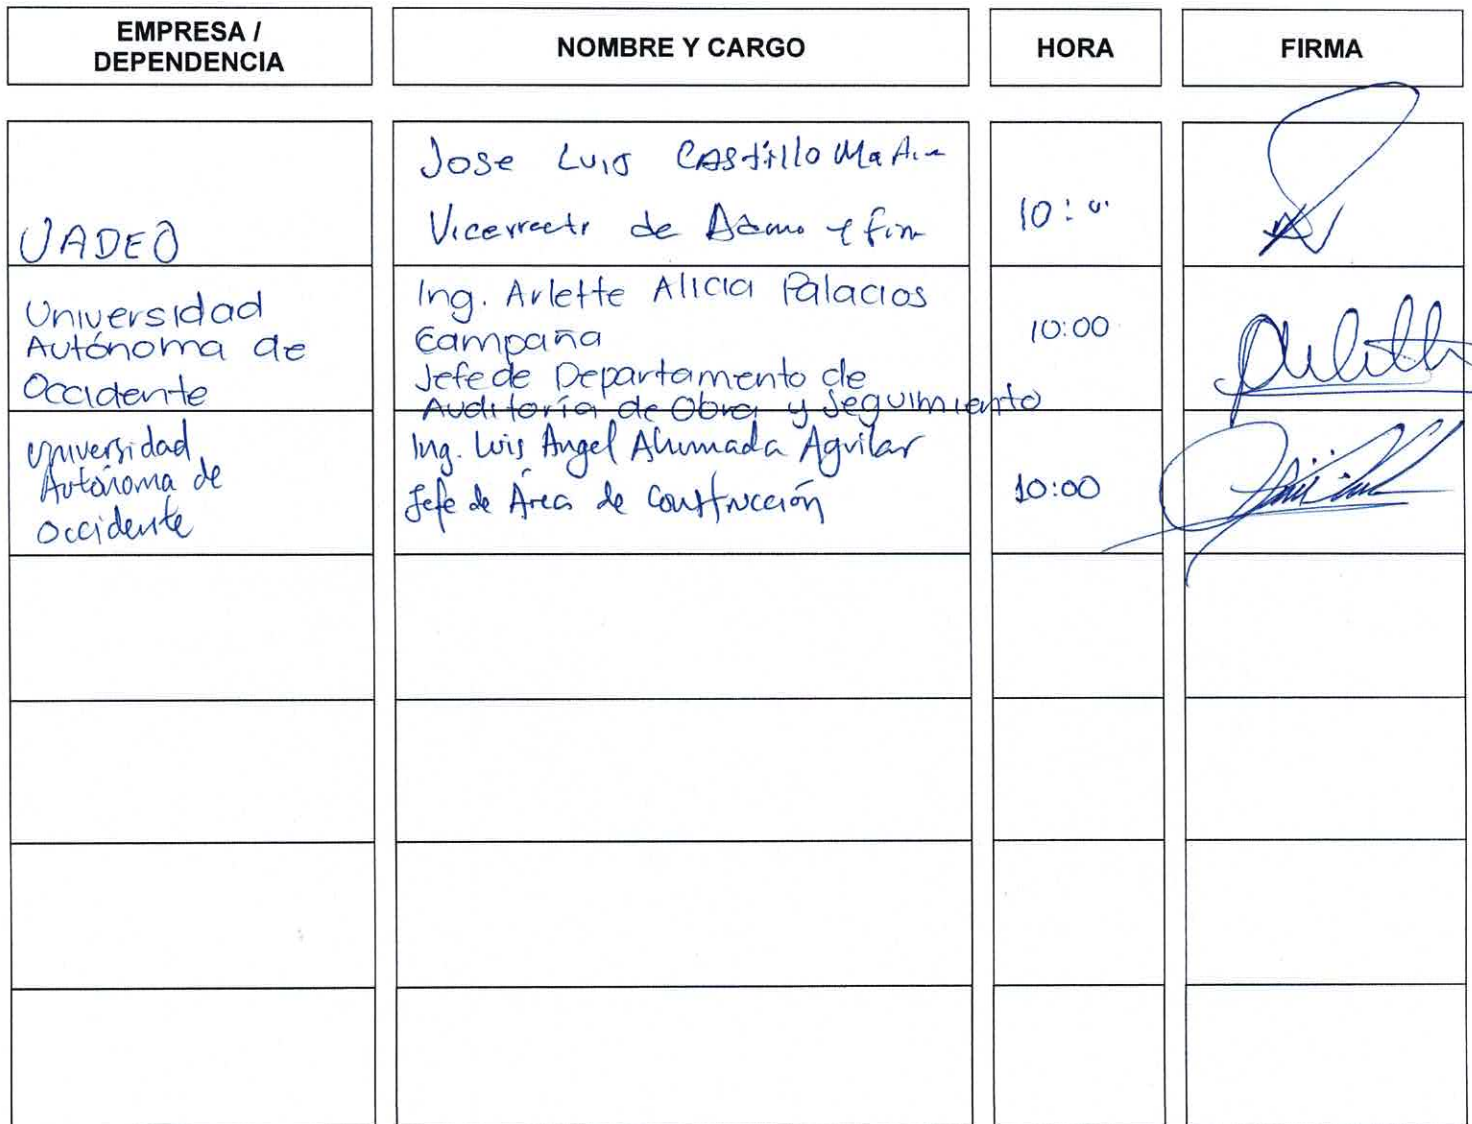 EMPRESA /
DEPENDENCIA
NOMBRE Y CARGO
HORA
FIRMA
UADEO
Jose Luis CAStillo
Vicerrectr de Admo y fin
10:
Universidad
Autónoma de
Occidente
Ing. Arlette Alicia Palacios
Campaña
Jefe de Departamento de
Auditoría de Obra y Seguimiento
10:00
Universidad
Autónoma de
Occidente
Ing. Luis Angel Ahumada Aguilar
Jefe de Área de Construcción
10:00